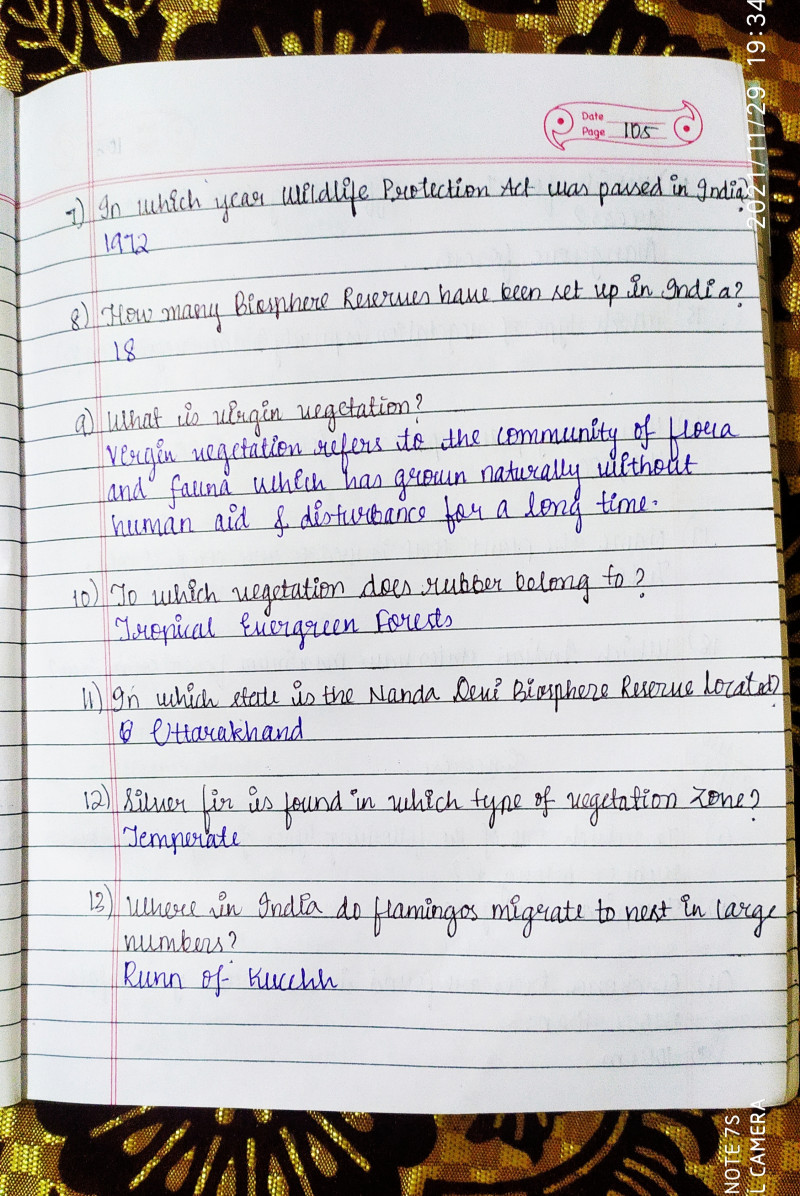 Date
Page 105
7) In which year Wildlife Protection Act was passed in India?
1972
8) How many Biosphere Reserves have been set up in India?
18
9) What is virgin vegetation?
Vergin vegetation refers to the community of flora
and fauna which has grown naturally without
human aid & disturbance for a long time.
10) To which vegetation does rubber belong to?
Tropical Evergreen Forests
11) In which state is the Nanda Devi Biosphere Reserve located?
Uttarakhand
12) Silver fir is found in which type of vegetation zone?
Temperate
13) Where in India do flamingos migrate to nest in large
numbers?
Runn of Kucchh
2021/11/29 19:34
NOTE 7S
L CAMERA